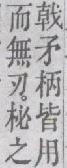 戟矛柄皆用
而無刃。柲之